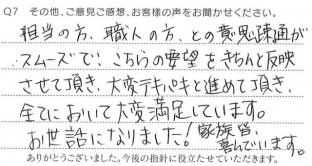 Q7 その他、ご意見ご感想、お客様の声をお聞かせください。
担当の方、職人の方、との意思疎通が
スムーズで、こちらの要望をきちんと反映
させて頂き、大変テキパキと進めて頂き、
全てにおいて大変満足しています。
お世話になりました!家族皆
喜んでいます。
ありがとうございました。今後の指針に役立たせていただきます。